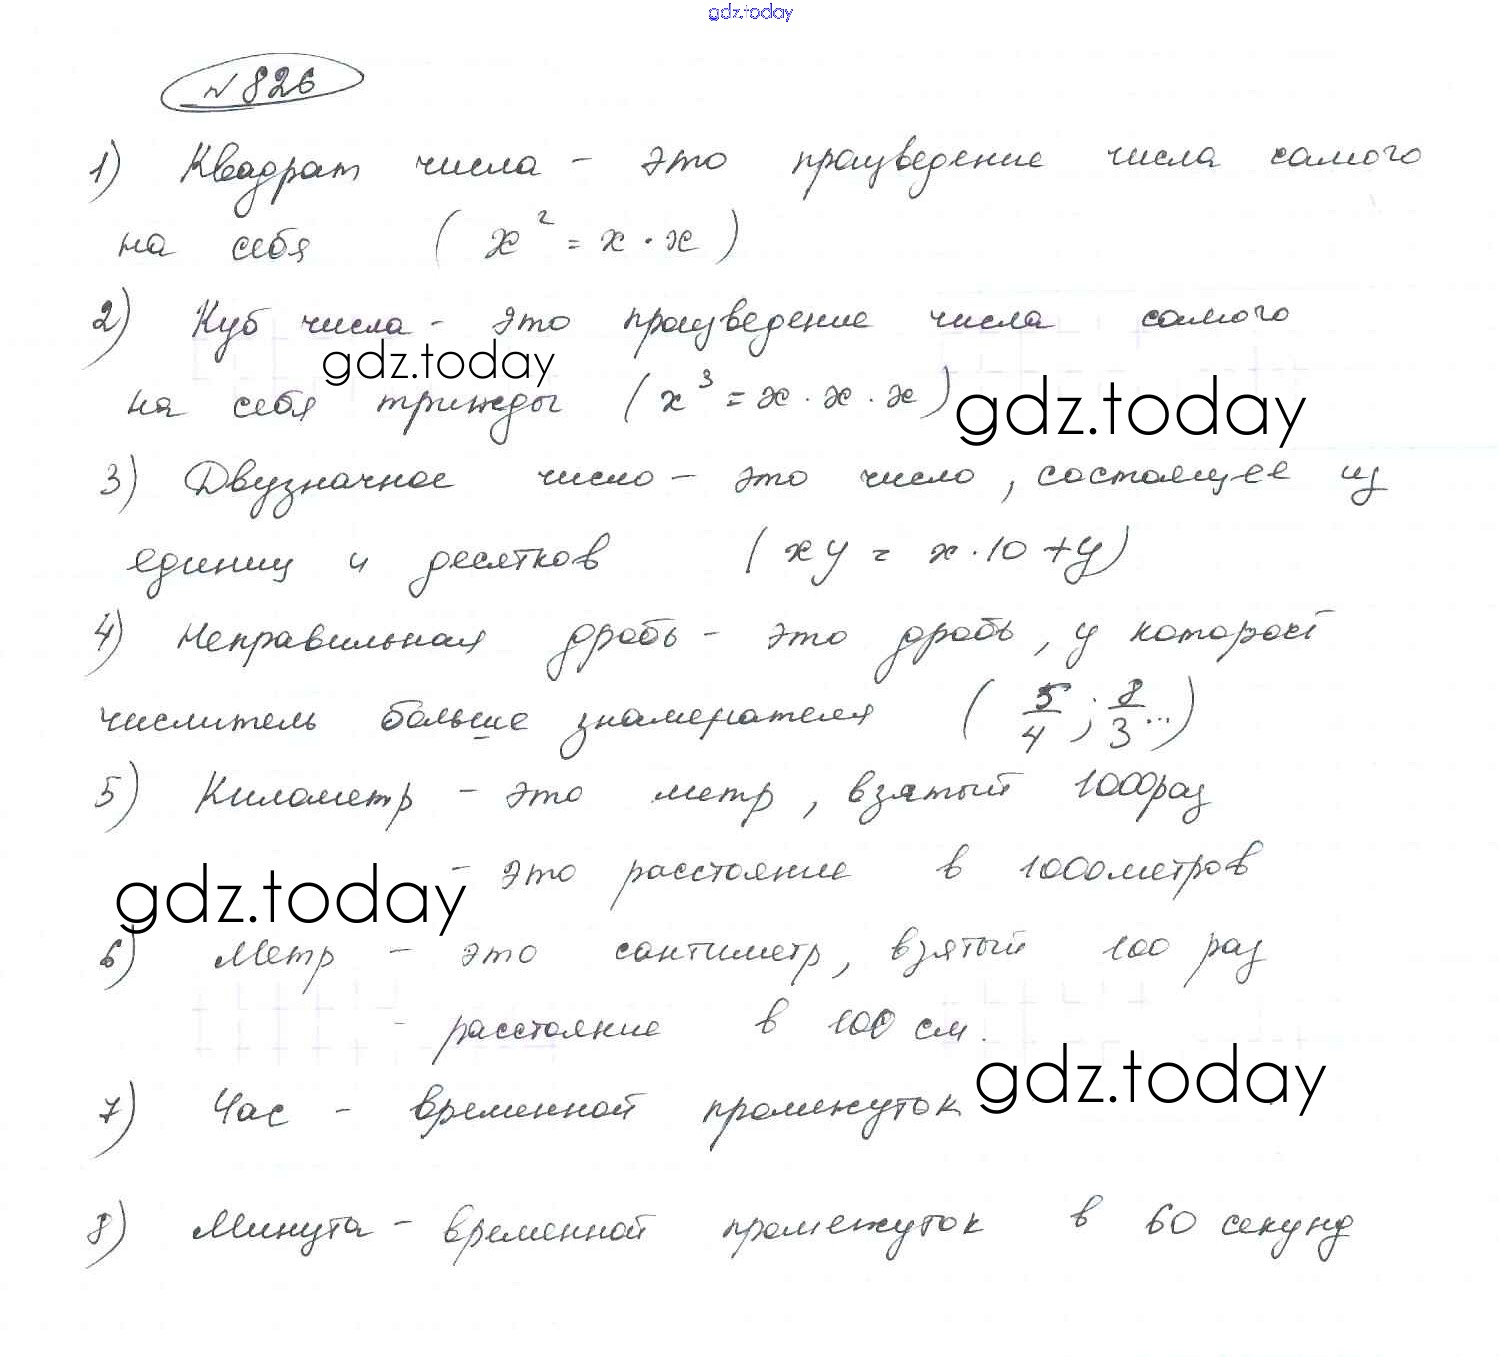 gdz.today
№ 826
1) Квадрат числа - это произведение числа самого
на себя (x² = x · x)
2) Куб числа - это произведение числа самого
gdz.today
на себя трижды (x³ = x · x · x)
gdz.today
3) Двузначное число - это число, состоящее из
единиц и десятков (xy = x · 10 + y)
4) Неправильная дробь - это дробь, у которой
числитель больше знаменателя (5/4; 8/3...)
5) Километр - это метр, взятый 1000 раз
- это расстояние в 1000 метров
gdz.today
6) Метр - это сантиметр, взятый 100 раз
- расстояние в 100 см.
gdz.today
7) Час - временной промежуток
8) Минута - временной промежуток в 60 секунд